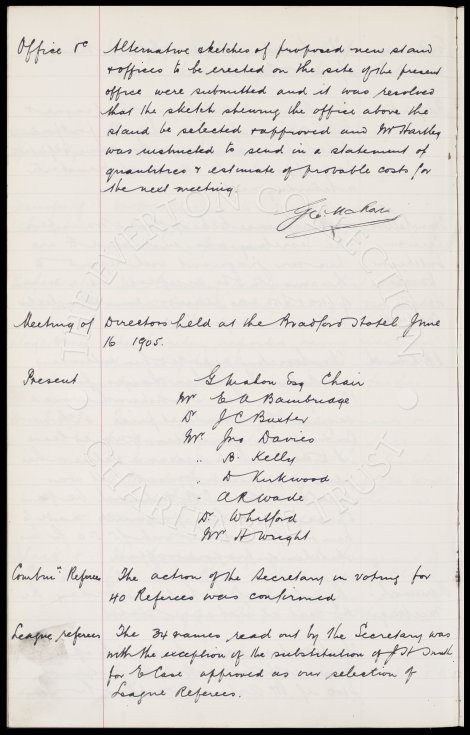 Office &c Alternative sketches of proposed new stand
& offices to be erected on the site of the present
office were submitted and it was resolved
that the sketch shewing the office above the
stand be selected & approved and Mr Hartley
was instructed to send in a statement of
quantities & estimate of probable costs for
the next meeting.
Geo Mahon
THE EVERTON COLLECTION
CHARITABLE TRUST
Meeting of Directors held at the Bradford Hotel June
16 1905.
Present G Mahon Esq Chair
Mr E A Bainbridge
Dr J C Baxter
Mr Jno Davies
" B. Kelly
" D Kirkwood
" A R Wade
Dr Whitford
Mr H Wright
Combinn Referees The action of the Secretary in voting for
40 Referees was confirmed
League referees The 34 names read out by the Secretary was
with the exception of the substitution of J H Smith
for E Case approved as our selection of
League Referees.